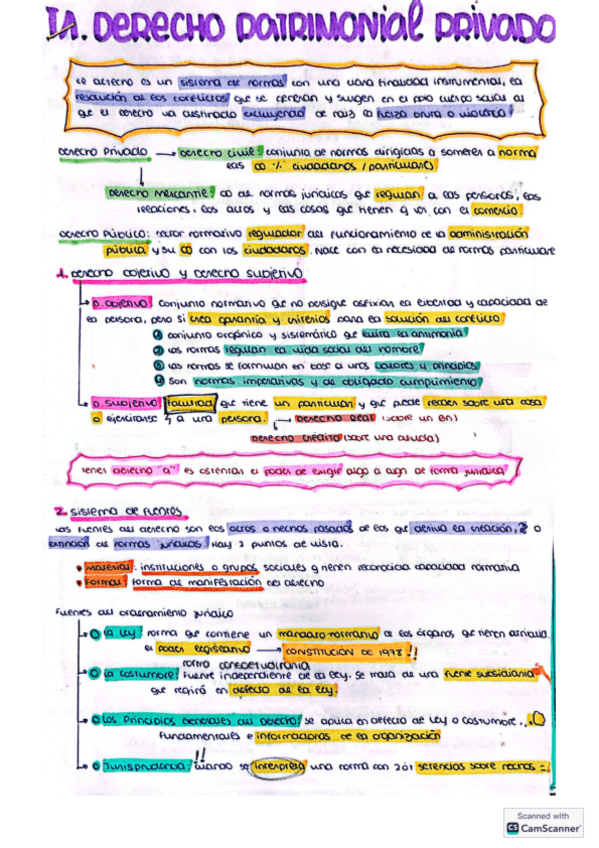 T1. DERECHO PATRIMONIAL PRIVADO
El derecho es un sistema de normas con una clara finalidad instrumental, la
resolución de los conflictos que se generan y surgen en el propio cuerpo social al
que el derecho va destinado excluyendo de raíz la fuerza bruta o violencia
Derecho Privado → Derecho civil: conjunto de normas dirigidas a someter a norma
las ciudadanos / particulares
Derecho Mercantil: de normas jurídicas que regulan a las personas, las
relaciones, los actos y las cosas que tienen q ver con el comercio.
Derecho Público: sector normativo regulador del funcionamiento de la administración
pública y su con los ciudadanos. Nace con la necesidad de normas particulares
1. Derecho objetivo y derecho subjetivo
D. objetivo: conjunto normativo que no persigue asfixiar la libertad y capacidad de
la persona, pero si crea garantía y criterios para la solución del conflicto
① conjunto orgánico y sistemático que evita la antinomia
② las normas regulan la vida social del hombre
③ las normas se formulan en base a unos valores y principios
④ Son normas imperativas y de obligado cumplimiento
D. subjetivo: Facultad que tiene un particular y que puede recaer sobre una cosa
o ejercitarse a una persona. → Derecho Real (sobre un bn)
Derecho crédito (sobre una deuda)
Tener derecho "a" es ostentar el poder de exigir algo a algn de forma jurídica
2. Sistema de fuentes
Las fuentes del derecho son los actos o hechos pasados de los que deriva la creación, o
extinción de formas jurídicas. Hay 2 puntos de vista.
• Material: instituciones o grupos sociales q tienen reconocida capacidad normativa
• Formal: forma de manifestación del derecho
Fuentes del ordenamiento jurídico
La ley: norma que contiene un mandato normativo de los órganos que tienen atribuida
el poder legislativo → CONSTITUCIÓN DE 1978!!
norma consuetudinaria
La costumbre: Fuente independiente de la ley. Se trata de una fuente subsidiaria
que regirá en defecto de la ley.
Los Principios Generales del Derecho: se aplica en defecto de ley o costumbre..
Fundamentales e informadoras de la organización
!!
Jurisprudencia: cuando se interpreta una norma con 2 o + sentencias sobre hechos =
Scanned with
CS CamScanner